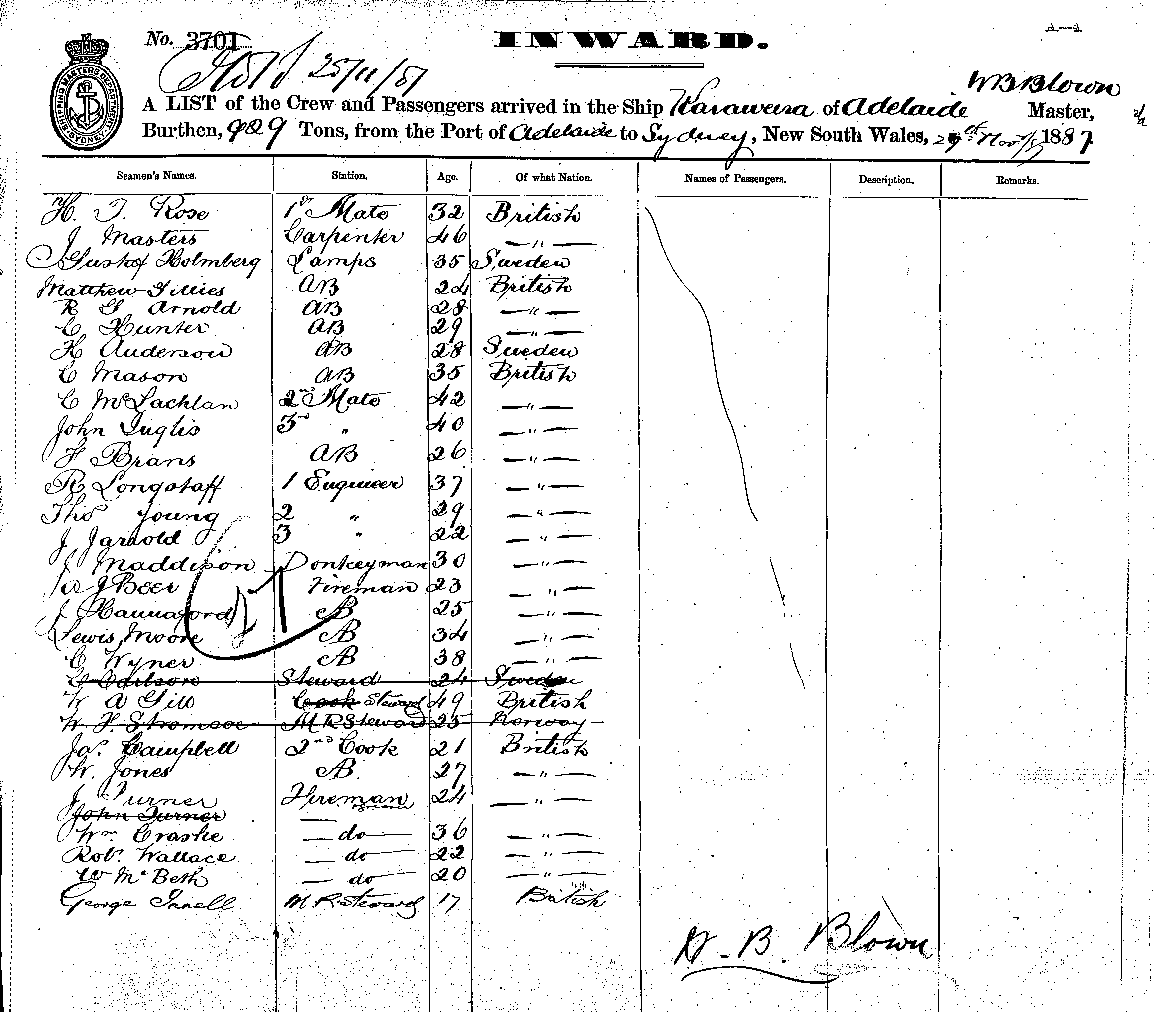 No. 3701 INWARD.
25/11/87
W B Blown
A LIST of the Crew and Passengers arrived in the Ship Karaweera of Adelaide Master,
Burthen, 929 Tons, from the Port of Adelaide to Sydney, New South Wales, Nov 1887
Seamen's Names. Station. Age. Of what Nation. Names of Passengers. Description. Remarks.
H. T. Rose 1st Mate 32 British
J Masters Carpenter 46 — " —
Gustof Holmberg Lamps 35 Sweden
Matthew Gillies AB 24 British
R G Arnold AB 28 — " —
C Hunter AB 29 — " —
H Anderson AB 28 Sweden
C Mason AB 35 British
C McLachlan 2nd Mate 42 — " —
John Inglis 3rd " 40 — " —
F Brans AB 26 — " —
R Longstaff 1 Engineer 37 — " —
Thos Young 2 " 29 — " —
J Jarrold 3 " 22 — " —
J Maddison Donkeyman 30 — " —
W J Beer Fireman 23 — " —
J Hannaford AB 25 — " —
Lewis Moore AB 34 — " —
C Wyner AB 38 — " —
C Carlson Steward 24 Sweden
W A Gill Cook Steward 49 British
W F Stromsoe M R Steward 25 Norway
Jas. Campbell 2nd Cook 21 British
W. Jones AB. 27 — " —
J Turner Fireman 24 — " —
John Turner
Wm Craske — do — 36 — " —
Robt. Wallace — do — 22 — " —
W McBeth — do — 20 — " —
George Innell M R Steward 17 British
W. B. Blown